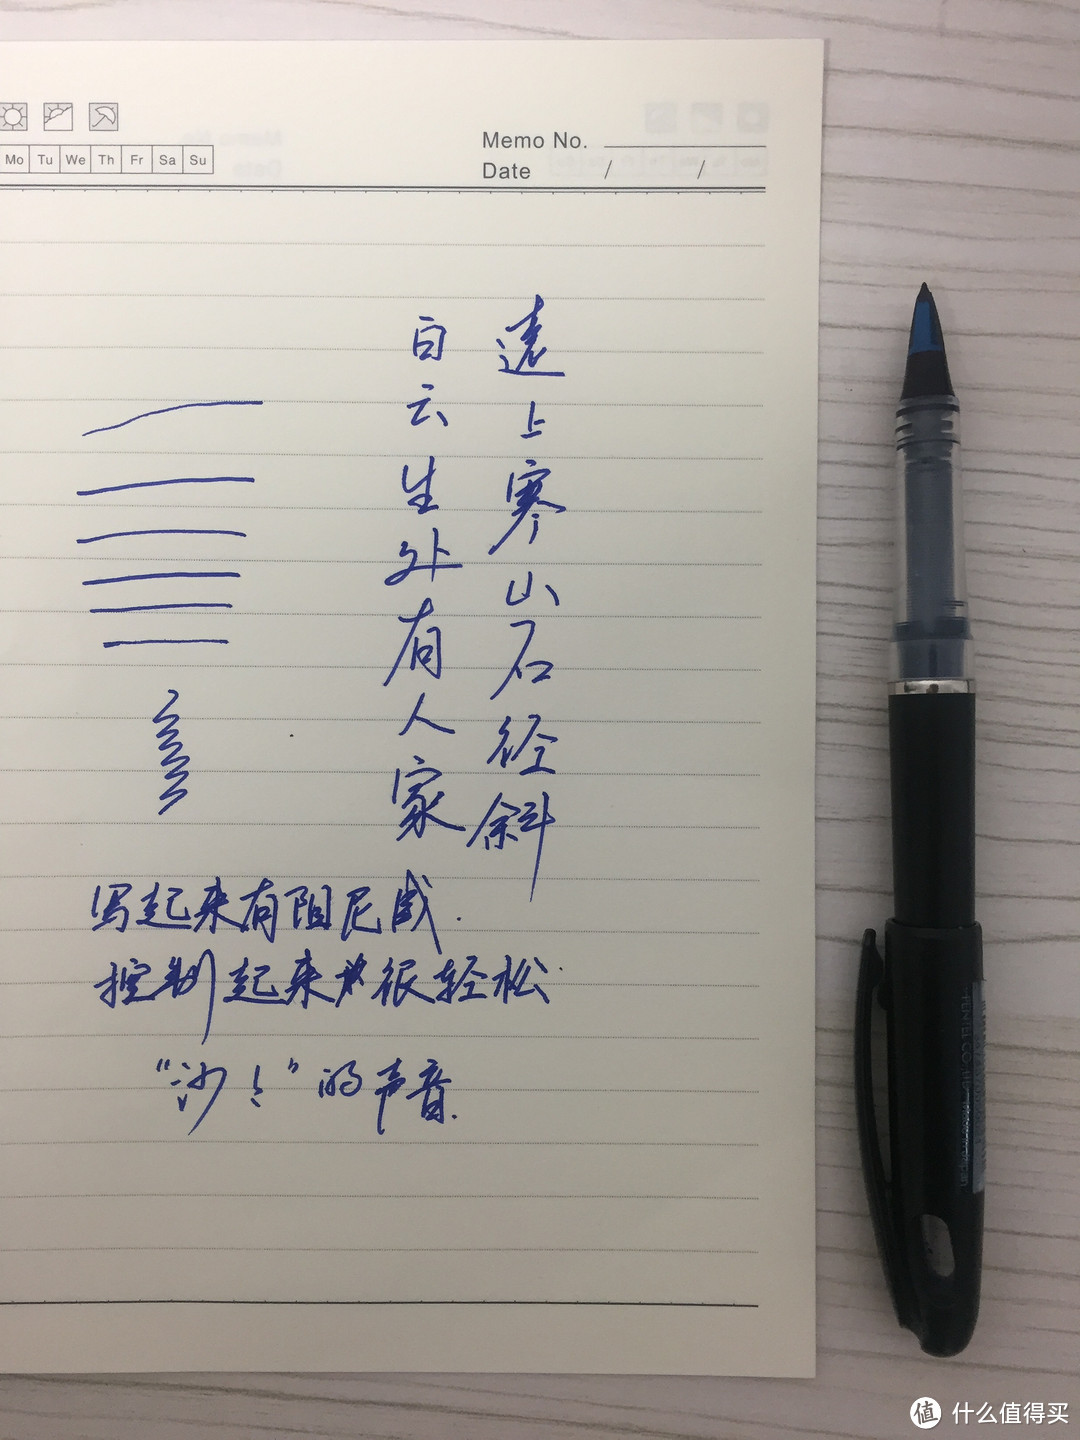 Mo Tu We Th Fr Sa Su
Memo No.
Date / /
遠上寒山石径斜
白云生处有人家
写起来有阻尼感.
控制起来很轻松.
“沙！”的声音.
值 什么值得买